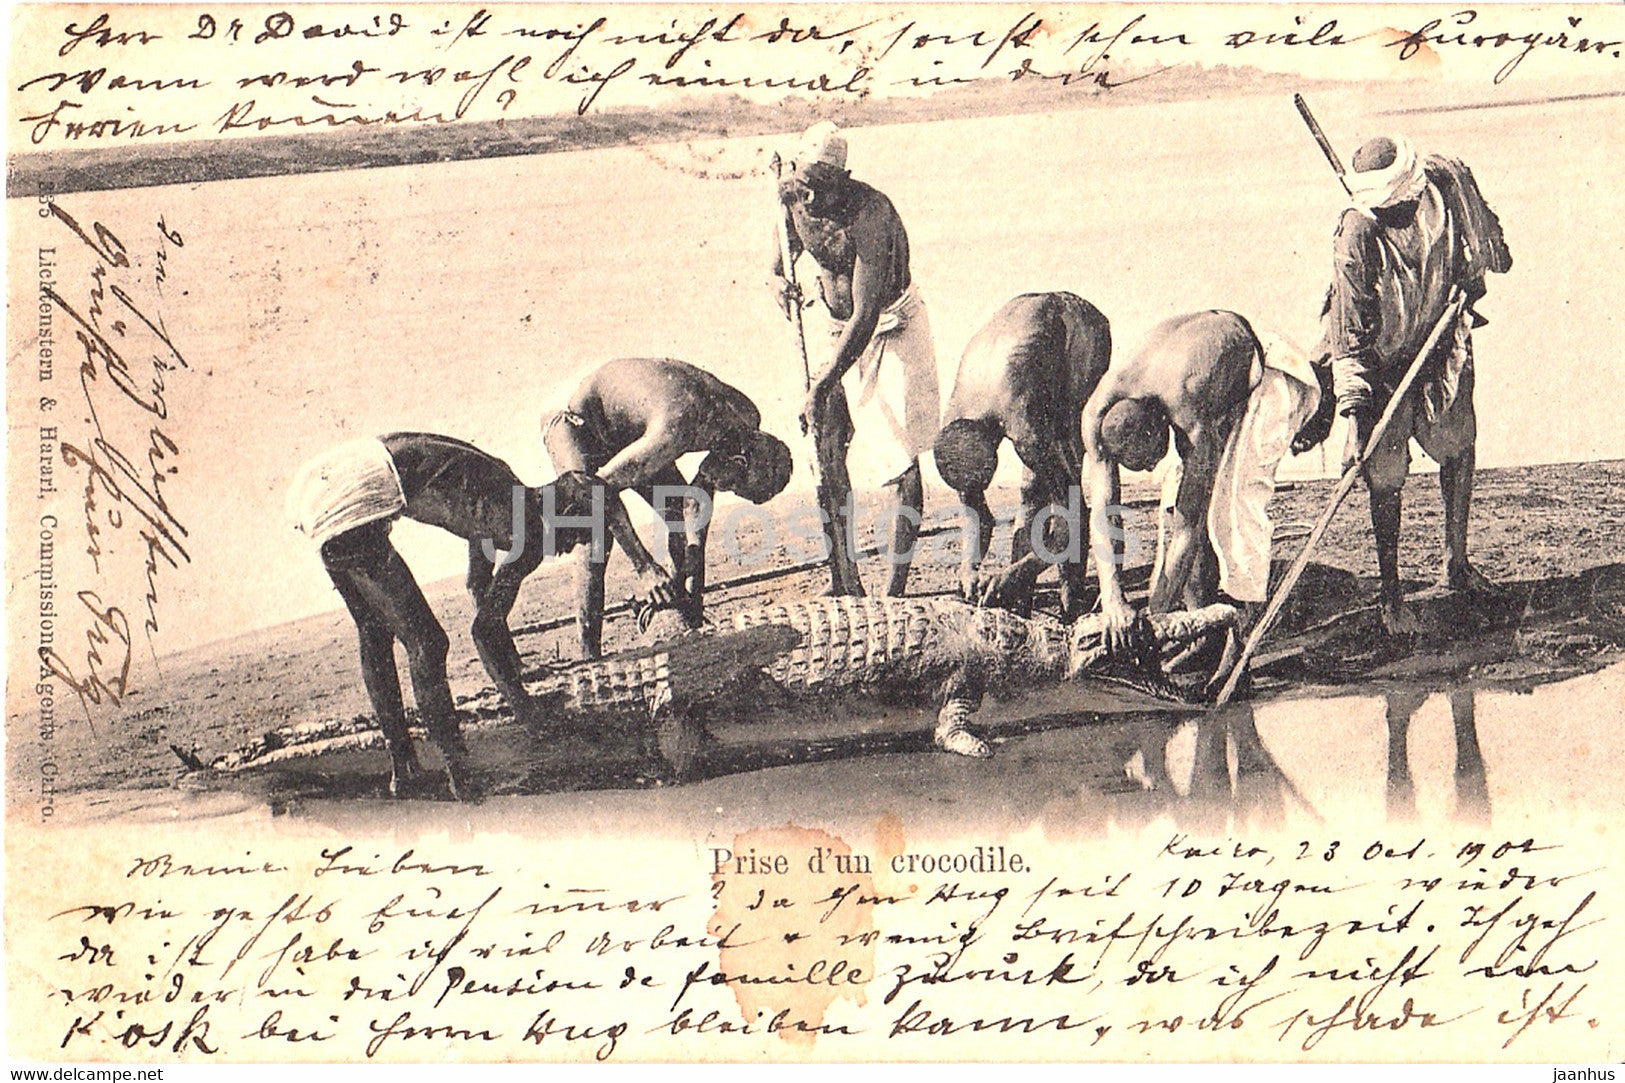 Herr Dr David ist noch nicht da, sonst schon viele Europäer.
Wann werd wohl ich einmal in die
Ferien kommen?
Lichtenstern & Harari, Commissions-Agente, Cairo.
Im
herzlichsten
Gruss
Prise d'un crocodile.
Kairo, 23 Oct. 1902
Meine Lieben
wie gehts Euch immer? da Herr Hug seit 10 Tagen wieder
da ist, habe ich viel Arbeit & wenig Briefschreibezeit. Ich geh
wieder in die Pension de famille zurück, da ich nicht im
Kiosk bei Herrn Hug bleiben kann, was schade ist.
JH Postcards
delcampe.net
jaanhus